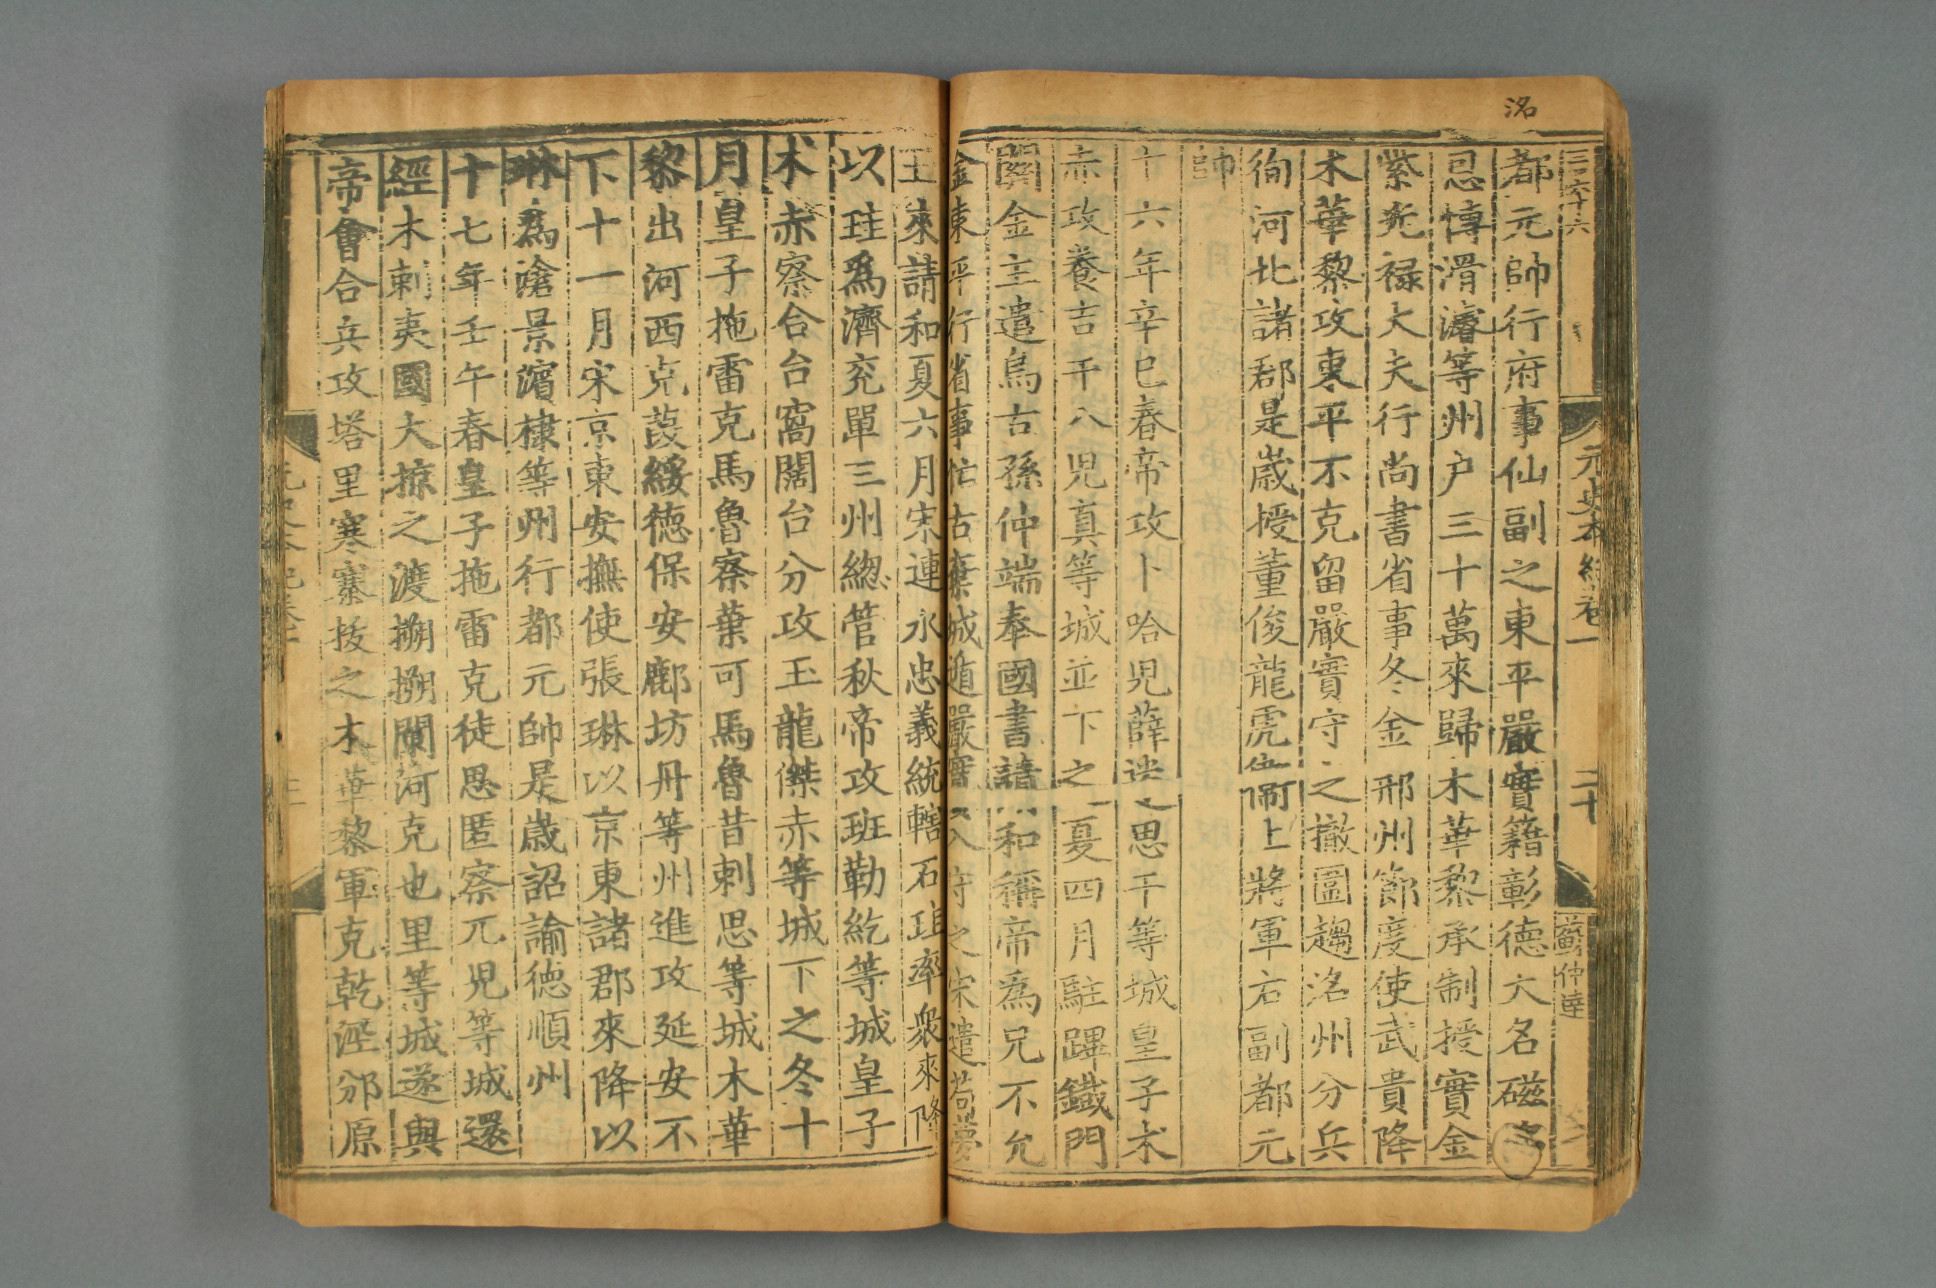 洺
三六十六
元史本紀卷一
二十
都元帥行府事仙副之東平嚴實籍彰德大名磁洺
恩博滑濬等州户三十萬來歸木華黎承制授實金
紫光禄大夫行尚書省事冬金邢州節度使武貴降
木華黎攻東平不克留嚴實守之撤圍趨洺州分兵
徇河北諸郡是歲授董俊龍虎衛上將軍右副都元
帥
十六年辛巳春帝攻卜哈兒薛迷思干等城皇子术
赤攻養吉干八兒真等城並下之夏四月駐蹕鐵門
關金主遣烏古孫仲端奉國書請和稱帝爲兄不允
金東平行省事忙古棄城遁嚴實入守之宋遣苟夢
玉來請和夏六月宋漣水忠義統轄石珪率衆來降
以珪爲濟兖單三州緫管秋帝攻班勒紇等城皇子
术赤察合台窩闊台分攻玉龍傑赤等城下之冬十
月皇子拖雷克馬魯察葉可馬魯昔剌思等城木華
黎出河西克葭綏德保安鄜坊丹等州進攻延安不
下十一月宋京東安撫使張琳以京東諸郡來降以
琳爲滄景濱棣等州行都元帥是歲詔諭德順州
十七年壬午春皇子拖雷克徒思匿察兀兒等城還
經木剌夷國大掠之渡搠搠闌河克也里等城遂與
帝會合兵攻塔里寒寨拔之木華黎軍克乾涇邠原